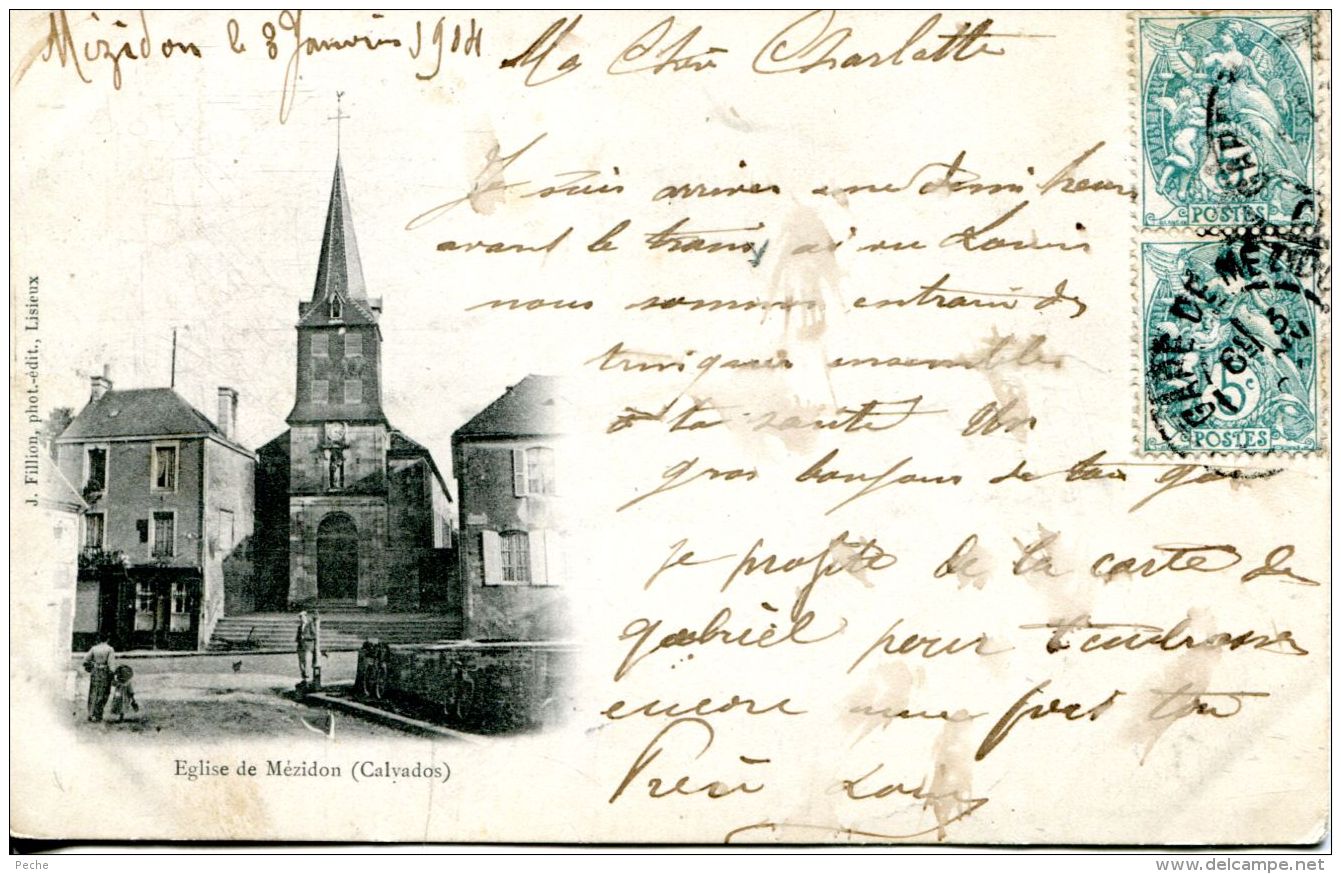 Mézidon le 3 Janvier 1904
Ma Chère Charlotte
Je suis arriver une demi heure
avant le train ai vu Louis
nous sommes entrain de
trinquer ensemble
à ta santé Un
gros bonjour de ton
je profite de la carte de
gabriel pour t'embrasser
encore une fois ton
Frère Louis
J. Fillion, phot.-édit., Lisieux
Eglise de Mézidon (Calvados)
POSTES
GARE DE MEZIDON
5c
POSTES
Peche
www.delcampe.net